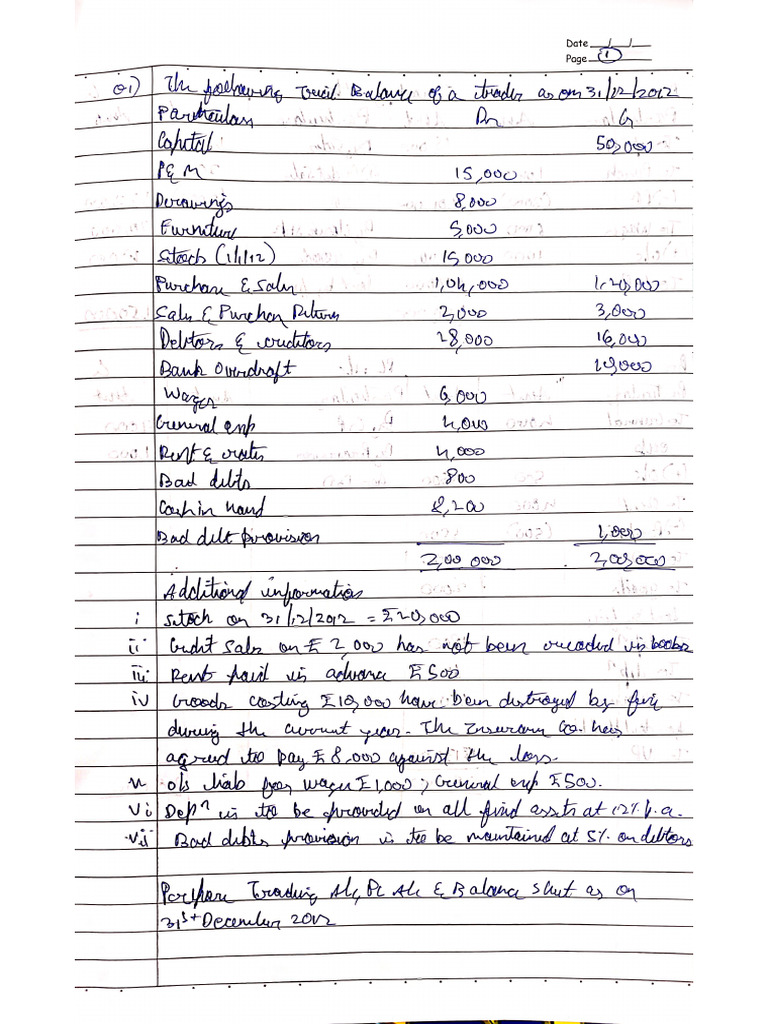 Date __/__/__
Page 1
Q1) The following Trial Balance of a trader as on 31/12/2012
Particulars Dr Cr
Capital 50,000
P&M 15,000
Drawings 8,000
Furniture 5,000
Stock (1/1/12) 15000
Purchase & Sales 1,04,000 1,20,000
Sales & Purchase Returns 2,000 3,000
Debtors & creditors 28,000 16,000
Bank Overdraft 10,000
Wages 6,000
General exp 4,000
Rent & rates 4,000
Bad debts 800
Cash in hand 8,200
Bad debt provision 1,000
2,00 000 2,00,000
Additional information
i stock on 31/12/2012 = £20,000
ii Credit sales on £ 2,000 has not been recorded in books
iii Rent paid in advance £500
iv Goods costing £10,000 have been destroyed by fire
during the current year. The Insurance Co. has
agreed to pay £8,000 against the loss.
v o/s liab for wages £1,000; General exp £500.
vi Depⁿ is to be provided on all fixed assets at 12% p.a.
vii Bad debts provision is to be maintained at 5% on debtors
Prepare Trading A/c, PL A/c & Balance sheet as on
31st December 2012